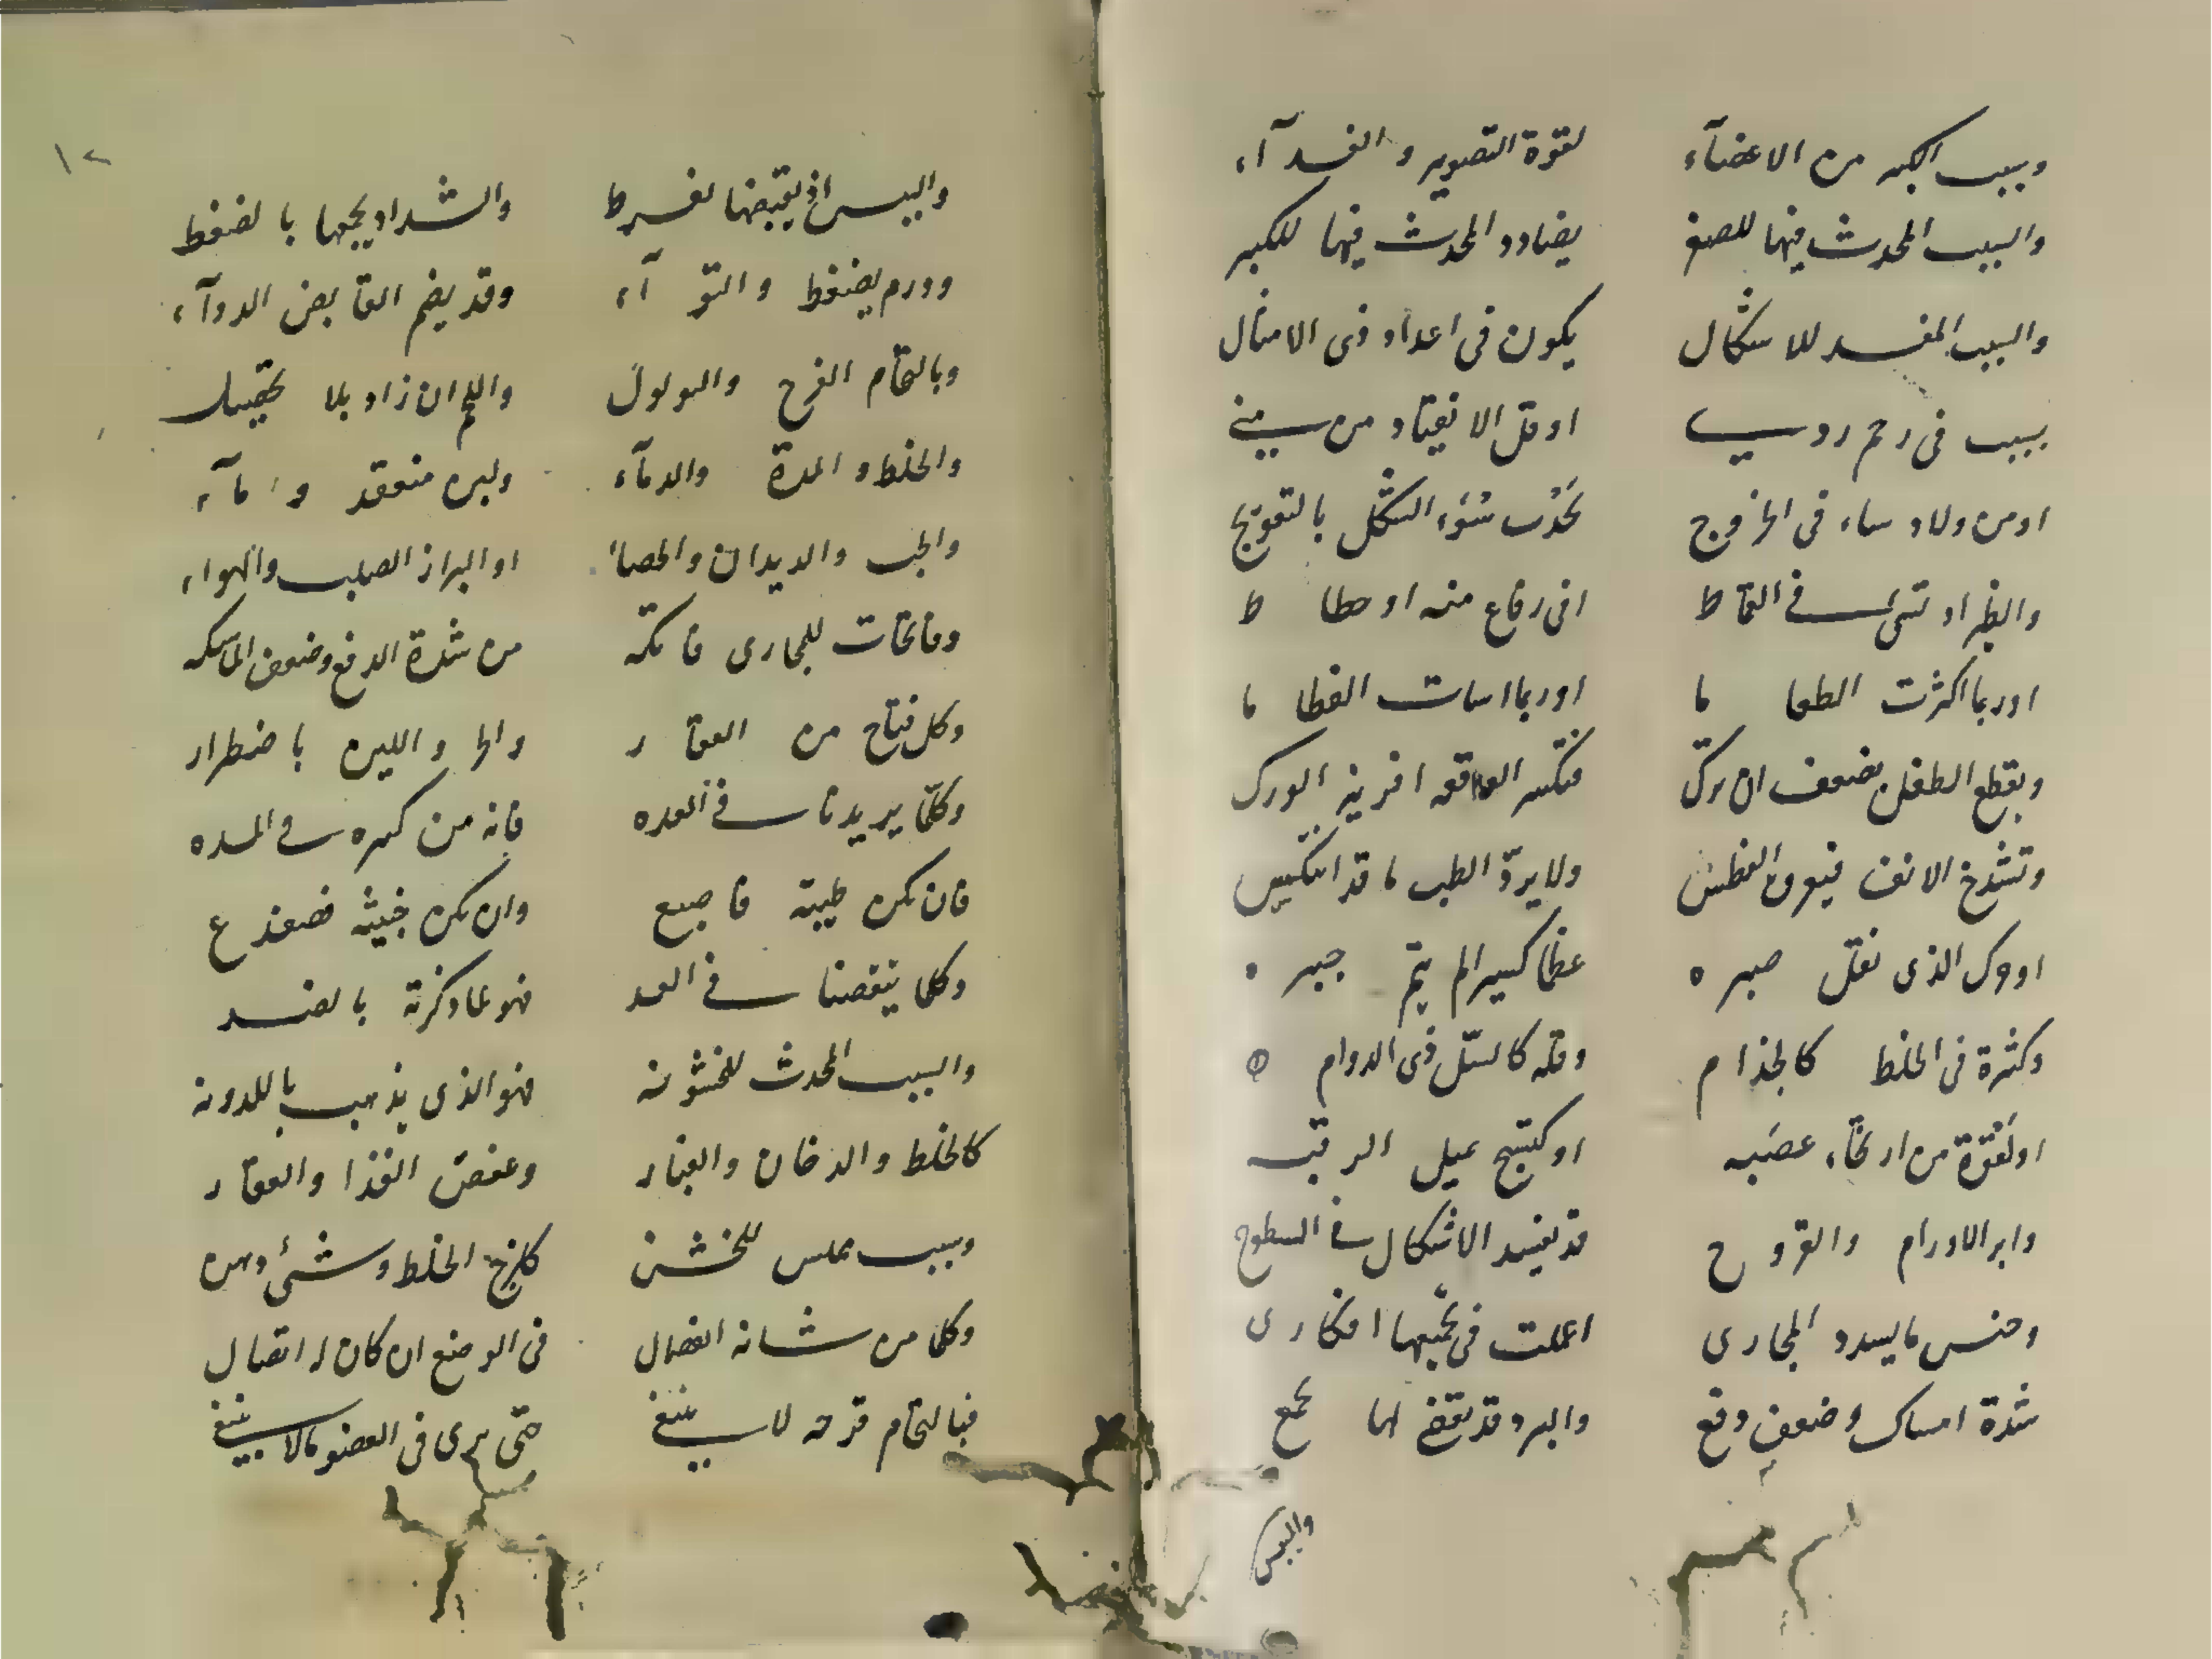 وسبب الكبر من الاعضآء لقوة التصوير و الغدآء
والسبب المحدث فيها للصغر يضادد المحدث فيها للكبر
والسبب المفسد للاشكال يكون فى اعداد ذى الامثال
بسبب فى رحم ردى او قل الانقياد من منى
او من ولاد ساء فى الخروج يحدث سُوء الشكل بالتعويج
والظئر اذ تسئ فى القماط او فى رفاع منه او حطاط
او ربما اكثرت الطعاما او ربما اسات الفطاما
ويقطع الطفل بضعف ان يترك فتكسر الواقعه افريز الورك
وتشدخ الانف فيعرف الفطس ولا يردّ الطب ما قد انتكس
او حرك الذى تقلل صبره عظما كسيرا لم يتم جبره
وكثرة فى الخلط كالجذام وقله كالسّل ذى الدوام
او لقوة من ارخآء عصبه او كتشنج يميل الرقبه
واثر الاورام والقروح قد يفسد الاشكال فى السطوح
وجنس ما يسدد المجارى اعملت فى تجميعها افكارى
شدة امساك وضعف دفع والبرد قد يقضى لها بجمع
واليبس
١٢
واليبس اذ يقبضها لفرط والشد اذ يجمعها بالضغط
وورم يضغط والتوآء وقد يضم القابض الدوآء
وبالتحام القرح والثولول واللحم ان زاد بلا تحصيل
والخلط و المدة والدمآء ولبن منعقد و مآء
والحب والديدان والحصاء او البراز الصلب والهواء
وفاتحات للمجارى فاتكه من شدة الدفع وضعف الماسكه
وكل فتاح من العقار والحر واللين باضطرار
وكلما يزيدنا فى العده فانه من كثره فى المده
فان تكن طيبة فاصبع وان تكن خبيثه فضفدع
وكلما ينقصنا فى العد فهو لما ذكرته بالضد
والسبب المحدث للخشونه فهو الذى يذهب باللدونه
كالخلط والدخان والغبار وعفص الغذا والعقار
وسبب مملس للخشن كلزج الخلط وشئ دهن
وكلما من شانه انفصال فى الوضع ان كان له اتصال
فبالتحام قرحه لا ينبغى حتى يرى فى العضو ما لا ينبغى